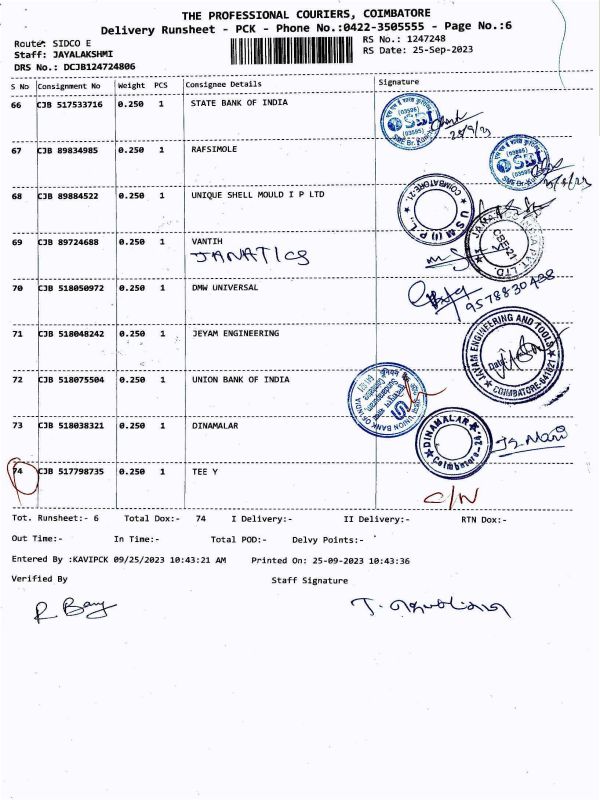 THE PROFESSIONAL COURIERS, COIMBATORE
Delivery Runsheet - PCK - Phone No.:0422-3505555 - Page No.:6
Route: SIDCO E
RS No.: 1247248
Staff: JAYALAKSHMI
RS Date: 25-Sep-2023
DRS No.: DCJB124724806
S No Consignment No Weight PCS Consignee Details Signature
66 CJB 517533716 0.250 1 STATE BANK OF INDIA
67 CJB 89834985 0.250 1 RAFSIMOLE
68 CJB 89884522 0.250 1 UNIQUE SHELL MOULD I P LTD
COIMBATORE-21 U S M (I) P L.,
69 CJB 89724688 0.250 1 VANTIH
JANATICS
CBE-21
70 CJB 518050972 0.250 1 DMW UNIVERSAL
9578830498
71 CJB 518048242 0.250 1 JEYAM ENGINEERING
JAYAM ENGINEERING AND TOOLS
Date:
COIMBATORE-641021
72 CJB 518075504 0.250 1 UNION BANK OF INDIA
UNION BANK OF INDIA
73 CJB 518038321 0.250 1 DINAMALAR
DINAMALAR
Coimbatore-24
74 CJB 517798735 0.250 1 TEE Y
C/N
Tot. Runsheet:- 6 Total Dox:- 74 I Delivery:- II Delivery:- RTN Dox:-
Out Time:- In Time:- Total POD:- Delvy Points:-
Entered By :KAVIPCK 09/25/2023 10:43:21 AM Printed On: 25-09-2023 10:43:36
Verified By Staff Signature